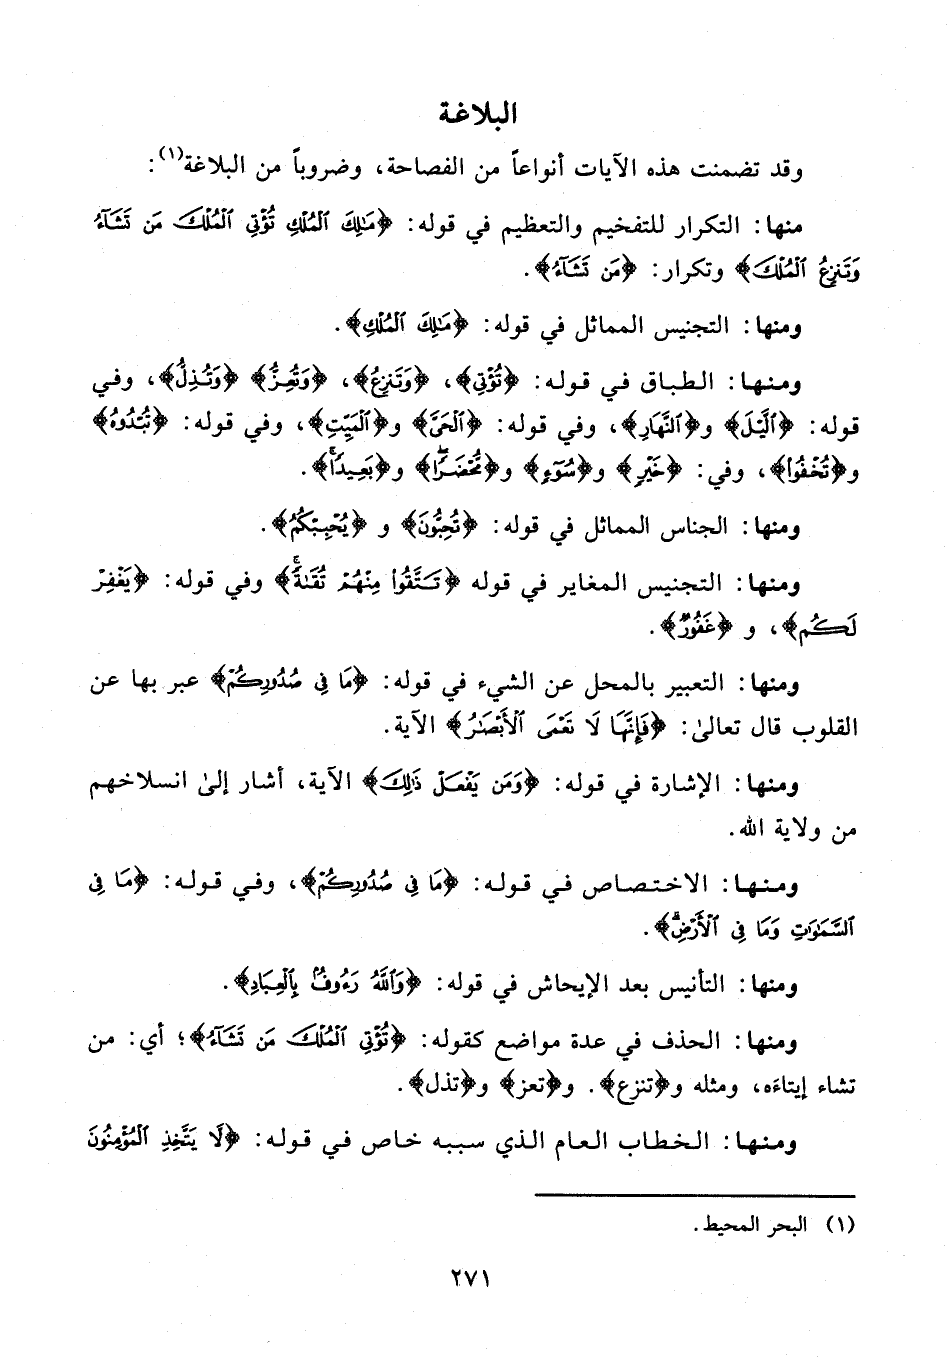 البلاغة
وقد تضمنت هذه الآيات أنواعاً من الفصاحة، وضروباً من البلاغة(١):
منها: التكرار للتفخيم والتعظيم في قوله: ﴿مَٰلِكَ ٱلْمُلْكِ تُؤْتِي ٱلْمُلْكَ مَن تَشَآءُ
وَتَنزِعُ ٱلْمُلْكَ﴾ وتكرار: ﴿مَن تَشَآءُ﴾.
ومنها: التجنيس المماثل في قوله: ﴿مَٰلِكَ ٱلْمُلْكِ﴾.
ومنها: الطباق في قوله: ﴿تُؤْتِي﴾، ﴿وَتَنزِعُ﴾، ﴿وَتُعِزُّ﴾ ﴿وَتُذِلُّ﴾، وفي
قوله: ﴿ٱلَّيْلَ﴾ و﴿ٱلنَّهَارِ﴾، وفي قوله: ﴿ٱلْحَيَّ﴾ و﴿ٱلْمَيِّتِ﴾، وفي قوله: ﴿تُبْدُوهُ﴾
و﴿تُخْفُوا۟﴾، وفي: ﴿خَيْرٍ﴾ و﴿سُوٓءٍ﴾ و﴿مُّحْضَرًا﴾ و﴿بَعِيدًا﴾.
ومنها: الجناس المماثل في قوله: ﴿تُحِبُّونَ﴾ و ﴿يُحْبِبْكُمُ﴾.
ومنها: التجنيس المغاير في قوله ﴿تَتَّقُوا۟ مِنْهُمْ تُقَىٰةً﴾ وفي قوله: ﴿يَغْفِرْ
لَكُم﴾، و ﴿غَفُورٌ﴾.
ومنها: التعبير بالمحل عن الشيء في قوله: ﴿مَا فِي صُدُورِكُمْ﴾ عبر بها عن
القلوب قال تعالىٰ: ﴿فَإِنَّهَا لَا تَعْمَى ٱلْأَبْصَٰرُ﴾ الآية.
ومنها: الإشارة في قوله: ﴿وَمَن يَفْعَلْ ذَٰلِكَ﴾ الآية، أشار إلىٰ انسلاخهم
من ولاية الله.
ومنها: الاختصاص في قوله: ﴿مَا فِي صُدُورِكُمْ﴾، وفي قوله: ﴿مَا فِي
ٱلسَّمَٰوَٰتِ وَمَا فِي ٱلْأَرْضِ﴾.
ومنها: التأنيس بعد الإيحاش في قوله: ﴿وَٱللَّهُ رَءُوفٌۢ بِٱلْعِبَادِ﴾.
ومنها: الحذف في عدة مواضع كقوله: ﴿تُؤْتِي ٱلْمُلْكَ مَن تَشَآءُ﴾؛ أي: من
تشاء إيتاءَه، ومثله و﴿تنزع﴾. و﴿تعز﴾ و﴿تذل﴾.
ومنها: الخطاب العام الذي سببه خاص في قوله: ﴿لَا يَتَّخِذِ ٱلْمُؤْمِنُونَ
(١) البحر المحيط.
٢٧١